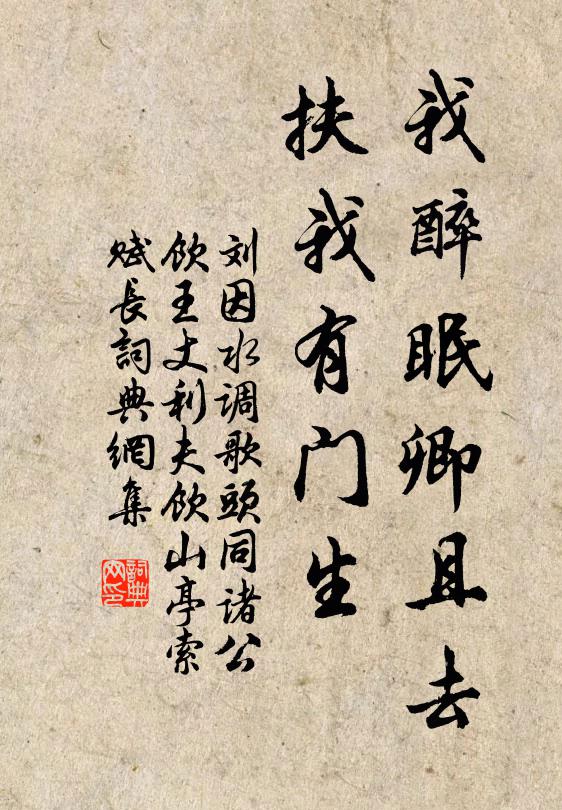 我醉眠卿且去
扶我有门生
刘因水调歌頭同诸公
饮王丈利夫饮山亭索
赋長詞典網集
詞典网印